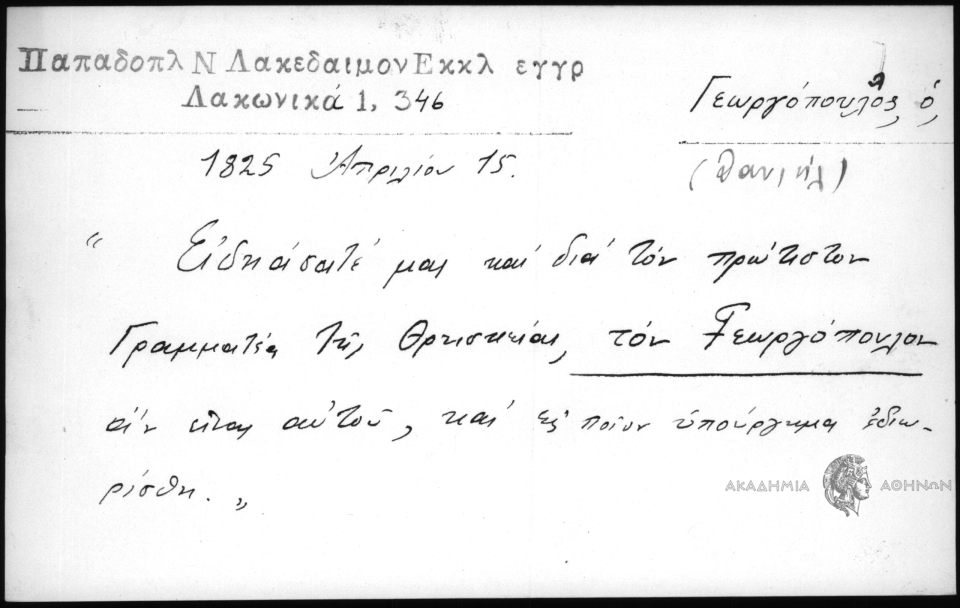 Παπαδοπλ Ν Λακεδαιμον Εκκλ εγγρ
Λακωνικά 1, 346
Γεωργόπουλος, ὁ,
(Δανιήλ)
1825 Ἀπριλίου 15.
“ Εἰδεάσατέ μας καὶ διά τόν πρώτιστον
Γραμματέα τῆς Θρησκείας, τόν Γεωργόπουλον
ἄν εἶναι αὐτοῦ, καί εἰς ποῖον ὑπούργημα ἐδιω-
ρίσθη. „
ΑΚΑΔΗΜΙΑ ΑΘΗΝΩΝ